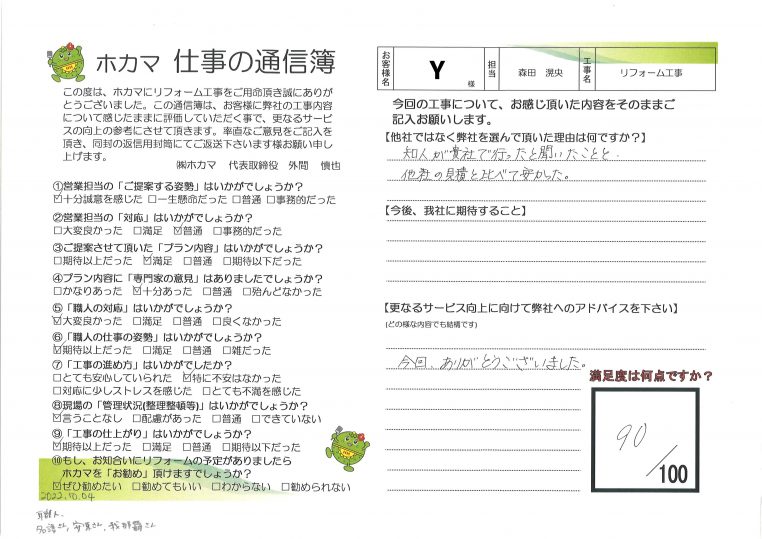 ホカマ 仕事の通信簿
この度は、ホカマにリフォーム工事をご用命頂き誠にありが
とうございました。この通信簿は、お客様に弊社の工事内容
について感じたままに評価していただく事で、更なるサービ
スの向上の参考にさせて頂きます。率直なご意見をご記入を
頂き、同封の返信用封筒にてご返送下さいます様お願い申し
上げます。
㈱ホカマ 代表取締役 外間 慎也
①営業担当の「ご提案する姿勢」はいかがでしょうか?
☑十分誠意を感じた □一生懸命だった □普通 □事務的だった
②営業担当の「対応」はいかがでしょうか?
□大変良かった □満足 ☑普通 □事務的だった
③ご提案させて頂いた「プラン内容」はいかがでしょうか?
□期待以上だった ☑満足 □普通 □期待以下だった
④プラン内容に「専門家の意見」はありましたでしょうか?
□かなりあった ☑十分あった □普通 □殆んどなかった
⑤「職人の対応」はいかがでしょうか?
☑大変良かった □満足 □普通 □良くなかった
⑥「職人の仕事の姿勢」はいかがでしょうか?
☑期待以上だった □満足 □普通 □雑だった
⑦「工事の進め方」はいかがでしたか?
□とても安心していられた ☑特に不安はなかった
□対応に少しストレスを感じた □とても不満を感じた
⑧現場の「管理状況(整理整頓等)」はいかがでしょうか?
☑言うことなし □配慮があった □普通 □できていない
⑨「工事の仕上がり」はいかがでしょうか?
☑期待以上だった □満足 □普通 □期待以下だった
⑩もし、お知合いにリフォームの予定がありましたら
ホカマを「お勧め」頂けますでしょうか?
☑ぜひ勧めたい □勧めてもいい □わからない □勧められない
2022.10.04
お客様名 Y 様 担当 森田 滉央 工事名 リフォーム工事
今回の工事について、お感じ頂いた内容をそのままご
記入お願いします。
【他社ではなく弊社を選んで頂いた理由は何ですか?】
知人が貴社で行ったと聞いたことと、
他社の見積と比べて安かった。
【今後、我社に期待すること】
【更なるサービス向上に向けて弊社へのアドバイスを下さい】
(どの様な内容でも結構です)
今回、ありがとうございました。
満足度は何点ですか?
90
/100